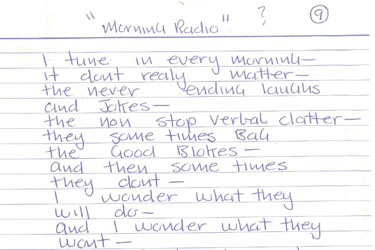 "Morning Radio" ? 9
I tune in every morning—
it dont realy matter—
the never ending laughs
and Jokes—
the non stop verbal clatter—
they some times Bag
the Good Blokes—
and then some times
they dont—
I wonder what they
will do—
and I wonder what they
wont—